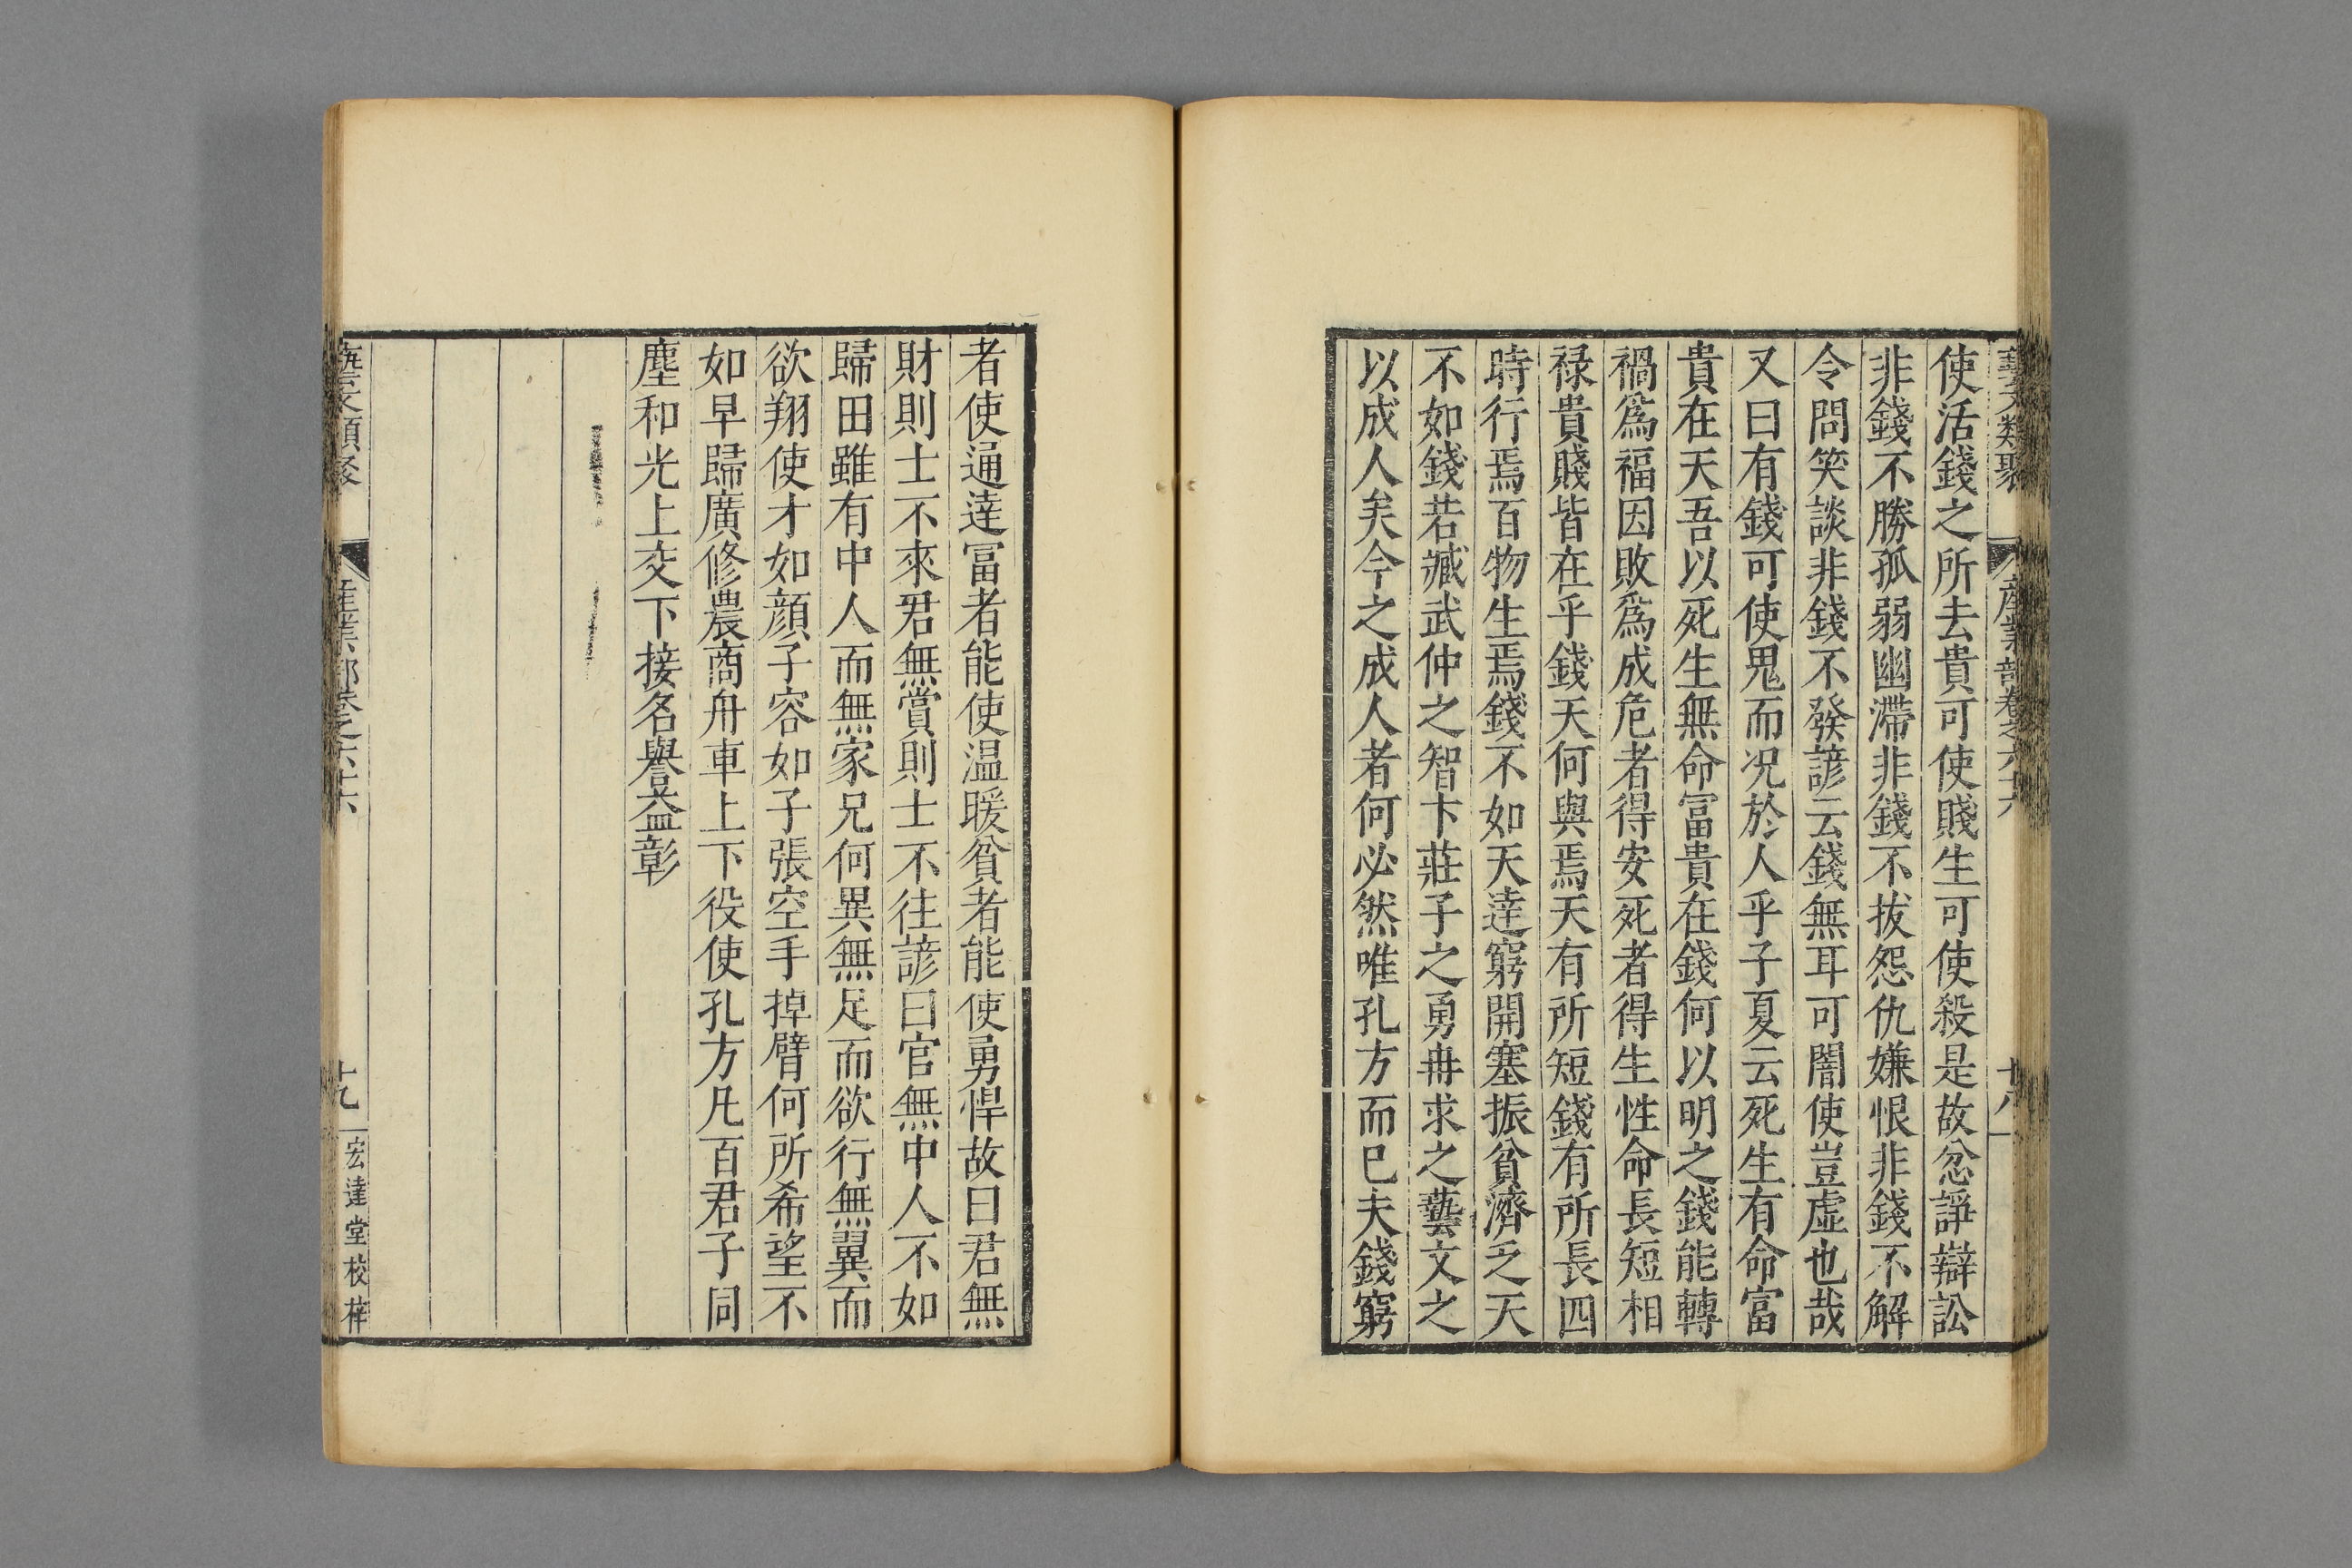 藝文類聚 産業部卷之六十六 十八
使活錢之所去貴可使賤生可使殺是故忿諍辯訟
非錢不勝孤弱幽滯非錢不拔怨仇嫌恨非錢不解
令問笑談非錢不發諺云錢無耳可闇使豈虛也哉
又曰有錢可使鬼而况於人乎子夏云死生有命富
貴在天吾以死生無命冨貴在錢何以明之錢能轉
禍爲福因敗爲成危者得安死者得生性命長短相
禄貴賤皆在乎錢天何與焉天有所短錢有所長四
時行焉百物生焉錢不如天達窮開塞振貧濟乏天
不如錢若臧武仲之智卞莊子之勇冉求之藝文之
以成人矣今之成人者何必然唯孔方而已夫錢窮
者使通達冨者能使温暖貧者能使勇悍故曰君無
財則士不來君無賞則士不往諺曰官無中人不如
歸田雖有中人而無家兄何異無足而欲行無翼而
欲翔使才如顔子容如子張空手掉臂何所希望不
如早歸廣修農商舟車上下役使孔方凡百君子同
塵和光上交下接名譽益彰
藝文類聚 産業部卷之六十六 十九 宏達堂校梓